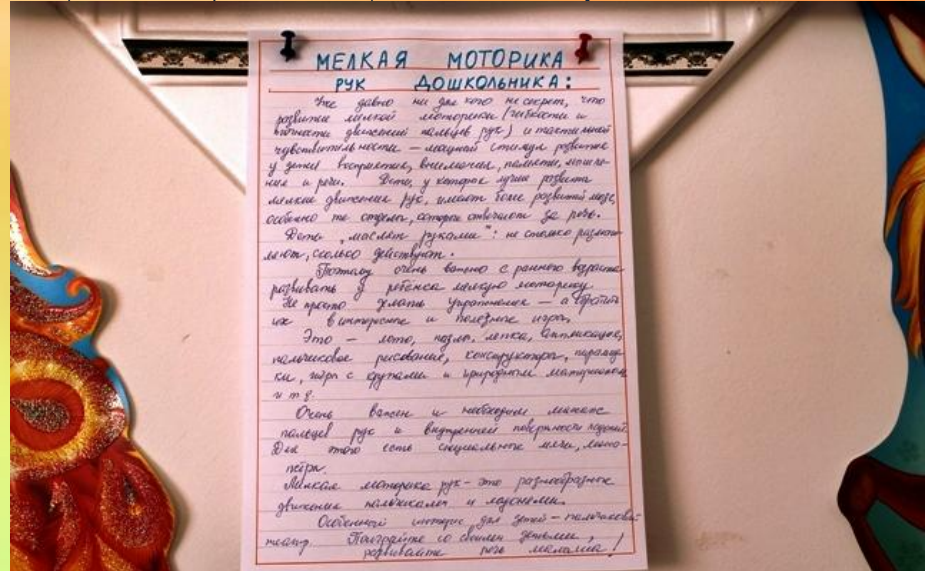 МЕЛКАЯ МОТОРИКА
РУК ДОШКОЛЬНИКА:
Уже давно ни для кого не секрет, что
развитие мелкой моторики (гибкости и
точности движений пальцев рук) и тактильной
чувствительности – мощный стимул развития
у детей восприятия, внимания, памяти, мышле-
ния и речи. Дети, у которых лучше развиты
мелкие движения рук, имеют более развитый мозг,
особенно те отделы, которые отвечают за речь.
Дети „мыслят руками": не столько размыш-
ляют, сколько действуют.
Поэтому очень важно с раннего возраста
развивать у ребенка мелкую моторику.
Не просто делать упражнения – а обратить
их в интересные и полезные игры.
Это – лото, пазлы, лепка, аппликация,
пальчиковое рисование, конструкторы, пирамид-
ки, игры с крупами и природным материалом
и т.д.
Очень важен и необходим массаж
пальцев рук и внутренней поверхности ладоней.
Для этого есть специальные мячи,
Мелкая моторика рук – это разнообразные
движения пальчиками и ладонями.
Особенный интерес для детей – пальчиковый
театр. Поиграйте со своими детьми,
развивайте речь малыша!